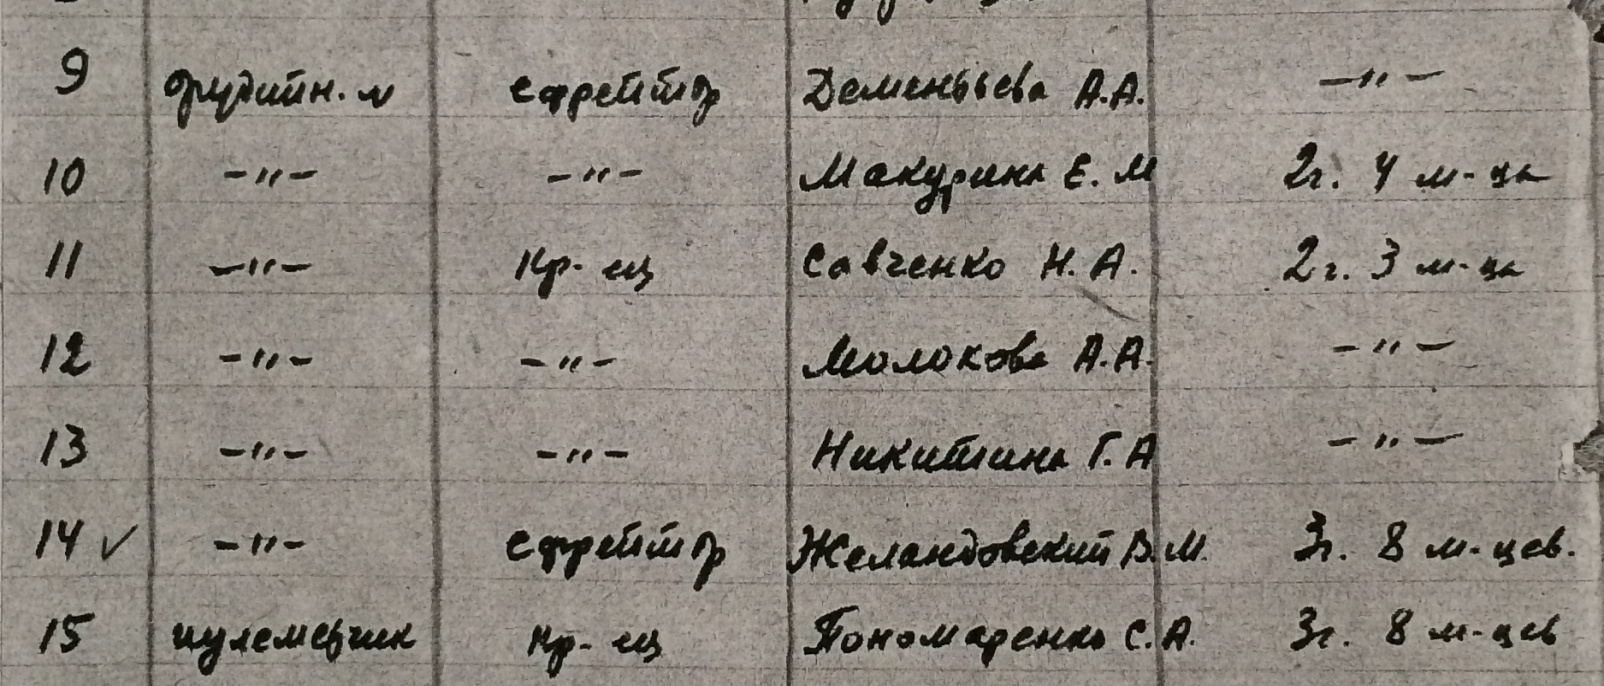 9 орудийн. м ефрейтор Дементьева А.А. —"—
10 —"— —"— Макурина Е. М 2г. 4 м-ца
11 —"— Кр-ец Савченко Н. А. 2г. 3 м-ца
12 —"— —"— Молокова А.А. —"—
13 —"— —"— Никитина Г. А —"—
14 ✓ —"— ефрейтор Желандовский В.М. 3г. 8 м-цев.
15 пулеметчик Кр-ец Пономаренко С.А. 3г. 8 м-цев